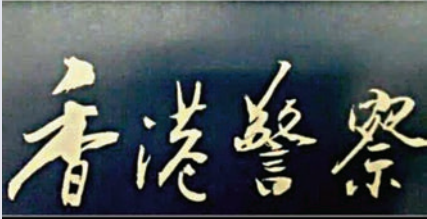 香港警察